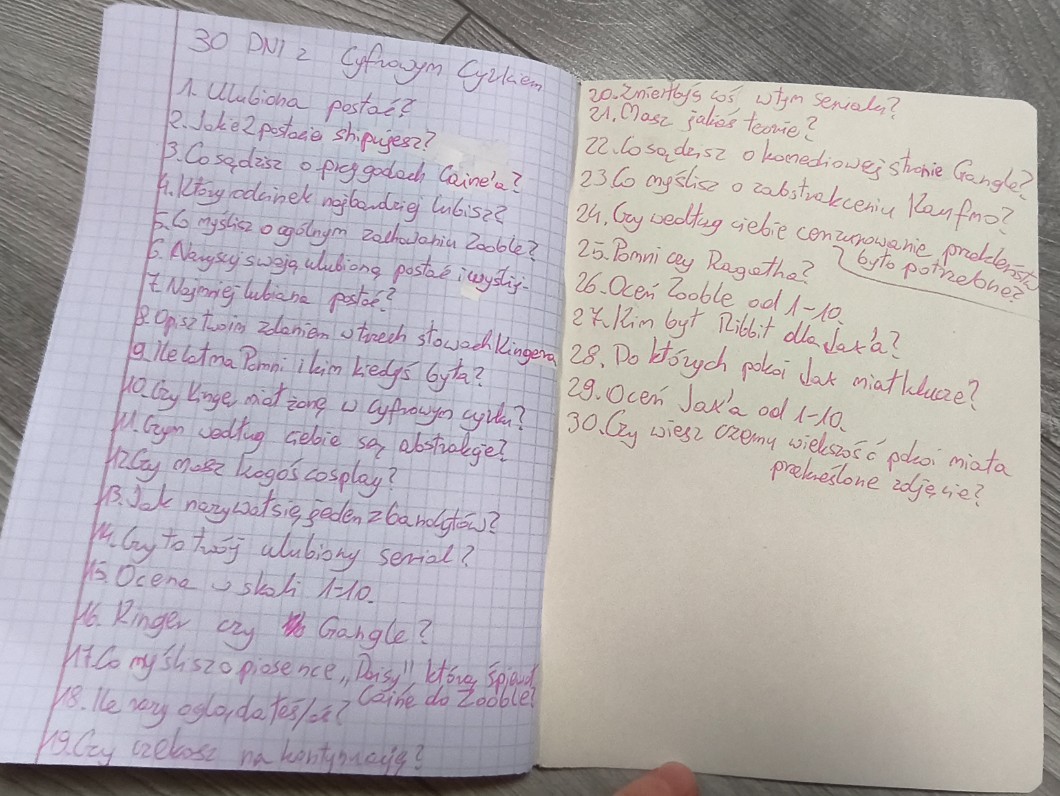 30 DNI z Cyfrowym Cyrkiem
1. Ulubiona postać?
2. Jakie 2 postacie shipujesz?
3. Co sądzisz o przygodach Caine'a?
4. Który odcinek najbardziej lubisz?
5. Co myślisz o ogólnym zachowaniu Zooble?
6. Narysuj swoją ulubioną postać i wyślij.
7. Najmniej lubiana postać?
8. Opisz twoim zdaniem w trzech słowach Kingera
9. Ile lat ma Pomni i kim kiedyś była?
10. Czy Kinger miał żonę w cyfrowym cyrku?
11. Czym według ciebie są abstrakcje?
12. Czy masz kogoś cosplay?
13. Jak nazywał się jeden z bandytów?
14. Czy to twój ulubiony serial?
15. Ocena w skali 1-10.
16. Kinger czy Gangle?
17. Co myślisz o piosence „Daisy" którą śpiewał
Caine do Zooble?
18. Ile razy oglądałeś/aś?
19. Czy czekasz na kontynuację?
20. Zmieniłbyś coś w tym serialu?
21. Masz jakieś teorie?
22. Co sądzisz o komediowej stronie Gangle?
23. Co myślisz o zabstrakceniu Kaufmo?
24. Czy według ciebie cenzurowanie przekleństw
było potrzebne?
25. Pomni czy Ragatha?
26. Oceń Zooble od 1-10.
27. Kim był Ribbit dla Jax'a?
28. Do których pokoi Jax miał klucze?
29. Oceń Jax'a od 1-10.
30. Czy wiesz czemu większość pokoi miała
przekreślone zdjęcie?